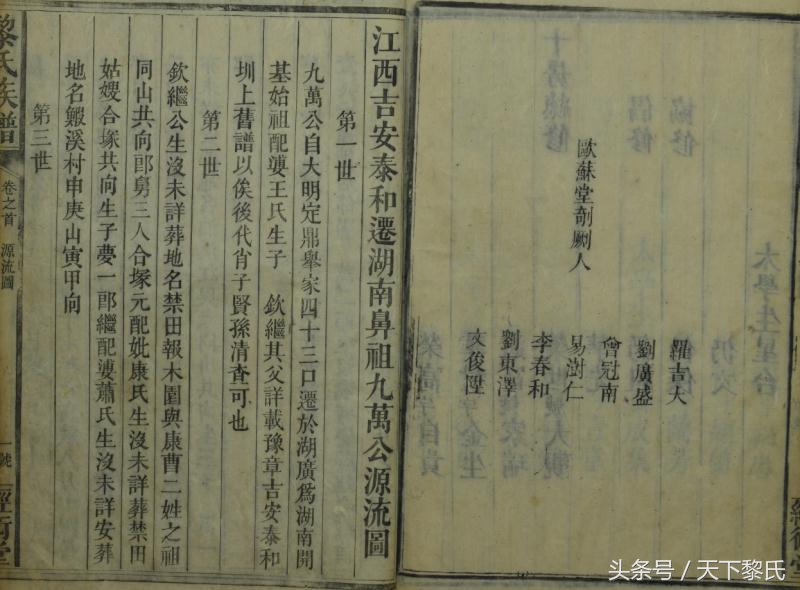 歐蘇堂剞劂人
羅吉大
劉廣盛
曾冠南
易樹仁
李春和
劉東澤
文俊陞
江西吉安泰和遷湖南鼻祖九萬公源流圖
第一世
九萬公自大明定鼎舉家四十三口遷於湖廣爲湖南開
基始祖配婆王氏生子 欽繼其父詳載豫章吉安泰和
圳上舊譜以俟後代肖子賢孫清查可也
第二世
欽繼公生沒未詳葬地名禁田報木園與康曹二姓之祖
同山共向郎舅三人合塚元配妣康氏生沒未詳葬禁田
姑嫂合塚共向生子夢一郎繼配婆蕭氏生沒未詳安葬
地名鰕溪村申庚山寅甲向
第三世
黎氏族譜
卷之首 源流圖
一號
經術堂
頭条号 / 天下黎氏